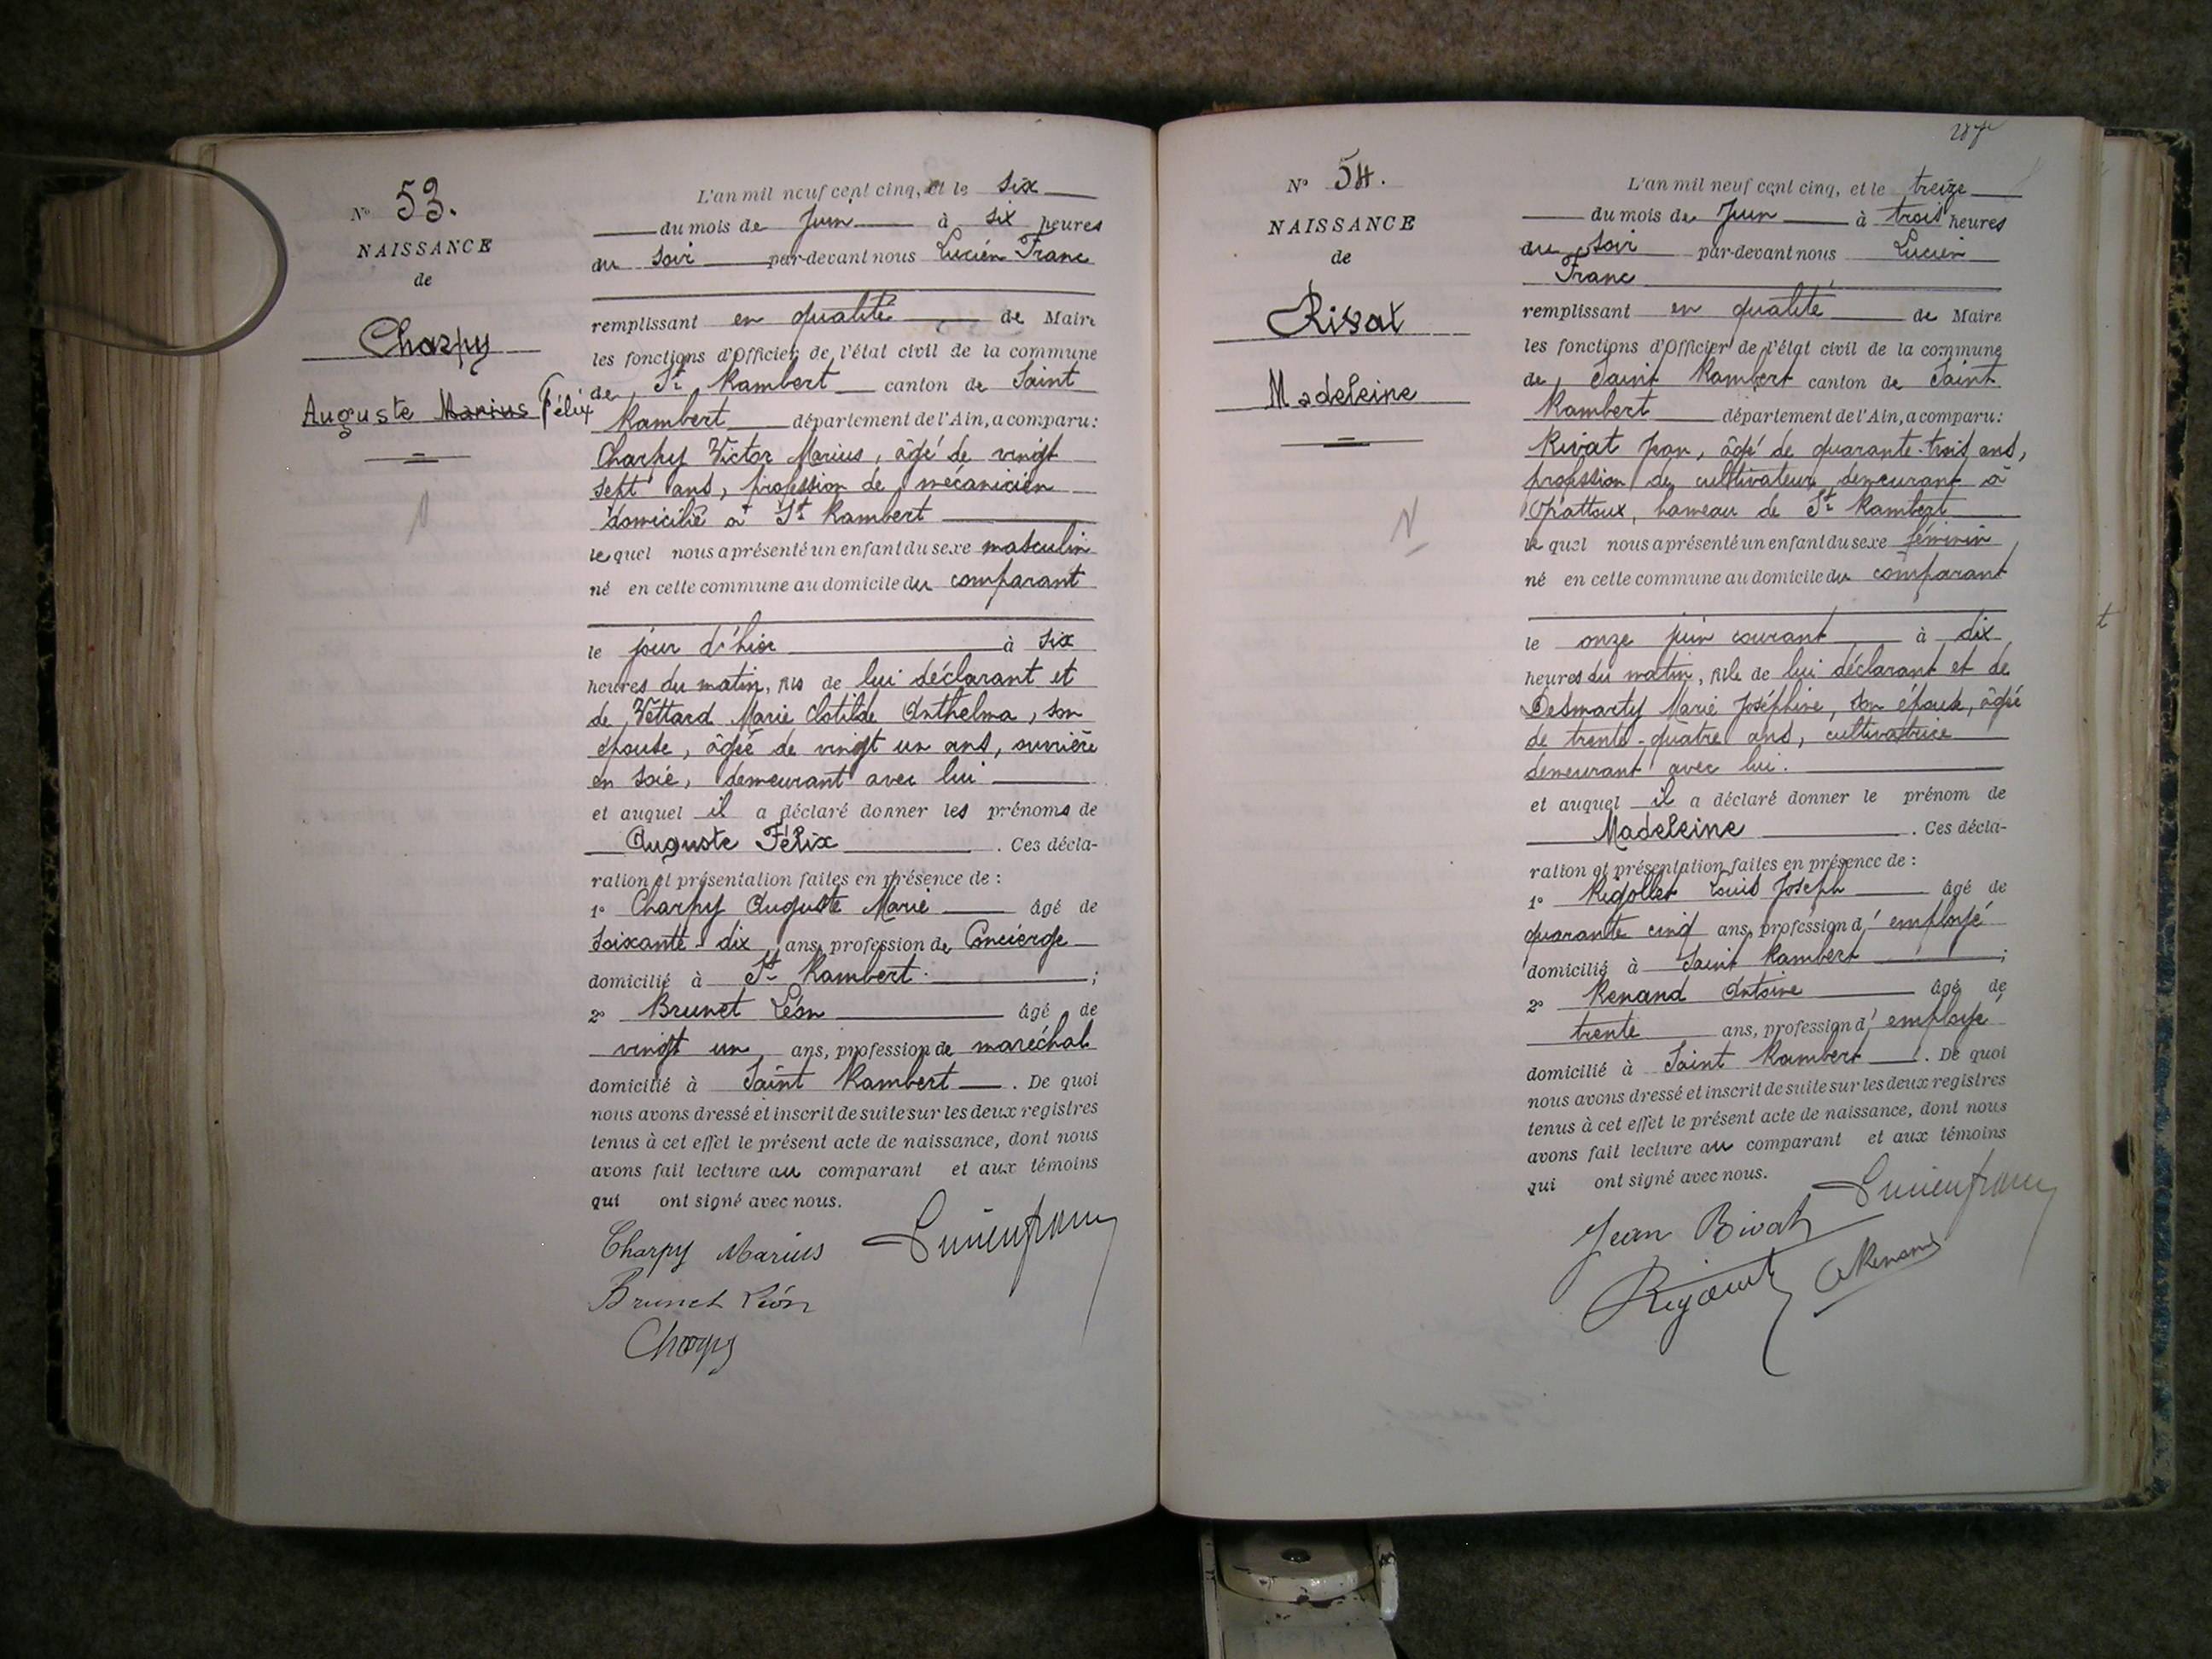 N° 53.
NAISSANCE
de
Charpy
Auguste Marius Félix
L'an mil neuf cent cinq, et le six
du mois de Juin à six heures
du soir par-devant nous Lucien Franc
remplissant en qualité de Maire
les fonctions d'Officier de l'état civil de la commune
de St Rambert canton de Saint
Rambert département de l'Ain, a comparu:
Charpy Victor Marius, âgé de vingt
sept ans, profession de mécanicien
domicilié à St Rambert
lequel nous a présenté un enfant du sexe masculin
né en cette commune au domicile du comparant
le jour d'hier à six
heures du matin, fils de lui déclarant et
de Vettard Marie Clotilde Anthelma, son
épouse, âgée de vingt un ans, ouvrière
en soie, demeurant avec lui
et auquel il a déclaré donner les prénoms de
Auguste Félix. Ces décla-
ration et présentation faites en présence de :
1° Charpy Auguste Marie âgé de
soixante-dix ans, profession de Concierge
domicilié à St Rambert ;
2° Brunet Léon âgé de
vingt un ans, profession de maréchal
domicilié à Saint Rambert. De quoi
nous avons dressé et inscrit de suite sur les deux registres
tenus à cet effet le présent acte de naissance, dont nous
avons fait lecture au comparant et aux témoins
qui ont signé avec nous.
Charpy Marius Lucien Franc
Brunet Léon
Charpy
N° 54.
NAISSANCE
de
Rivat
Madeleine
N
L'an mil neuf cent cinq, et le treize
du mois de Juin à trois heures
du soir par-devant nous Lucien
Franc
remplissant en qualité de Maire
les fonctions d'Officier de l'état civil de la commune
de Saint Rambert canton de Saint
Rambert département de l'Ain, a comparu:
Rivat Jean, âgé de quarante-trois ans,
profession de cultivateur, demeurant à
hameau de St Rambert
lequel nous a présenté un enfant du sexe féminin
né en cette commune au domicile du comparant
le onze juin courant à dix
heures du matin, fille de lui déclarant et de
Desmarty Marie Joséphine, son épouse, âgée
de trente-quatre ans, cultivatrice
demeurant avec lui.
et auquel il a déclaré donner le prénom de
Madeleine. Ces décla-
ration et présentation faites en présence de :
1° Rigollet Louis Joseph âgé de
quarante cinq ans, profession d'employé
domicilié à Saint Rambert ;
2° Renand Antoine âgé de
trente ans, profession d'employé
domicilié à Saint Rambert. De quoi
nous avons dressé et inscrit de suite sur les deux registres
tenus à cet effet le présent acte de naissance, dont nous
avons fait lecture au comparant et aux témoins
qui ont signé avec nous.
Lucien Franc
Jean Rivat
A Renand